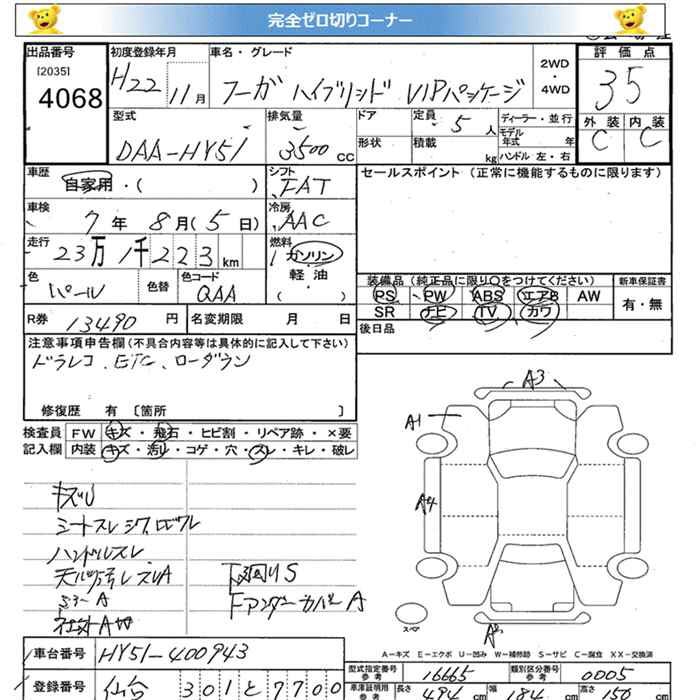 完全ゼロ切りコーナー
出品番号 初度登録年月 車名・グレード 2WD・4WD 評価点
[2035] 4068 H22 11月 フーガ ハイブリッド VIPパッケージ 35
型式 排気量 ドア 定員 5人 ディーラー・並行 外装 内装
DAA-HY51 3500cc 形状 積載 kg モデル年式 年 C C
ハンドル 左・右
車歴 自家用・( ) シフト FAT セールスポイント (正常に機能するものに限ります)
車検 7年8月(5日) 冷房 AAC
走行 23万1千223km 燃料 ガソリン
軽油
( )
色 パール 色替 色コード QAA 装備品(純正品に限り○をつけてください) 新車保証書
PS PW ABS エアB AW 有・無
SR ナビ TV カワ
R券 13490円 名変期限 月 日 後日品
注意事項申告欄(不具合内容等は具体的に記入して下さい)
ドラレコ、ETC、ローダウン
修復歴 有 〔箇所 〕
検査員 FW キズ・飛石・ヒビ割・リペア跡・×要
記入欄 内装 キズ・汚レ・コゲ・穴・スレ・キレ・破レ
A3
A1
A4
キズU
シートスレ シワ
ハンドルスレ
下廻りS
ミラーA
FアンダーカバーA
スペア
A-キズ E-エクボ U-凹み W-補修跡 S-サビ C-腐食 XX-交換済
車台番号 HY51-400943
型式指定番号 参考 16665 類別区分番号 参考 0005
登録番号 仙台 301 と 7700
車庫証明用 参考 長さ 494cm 幅 184cm 高さ 152cm